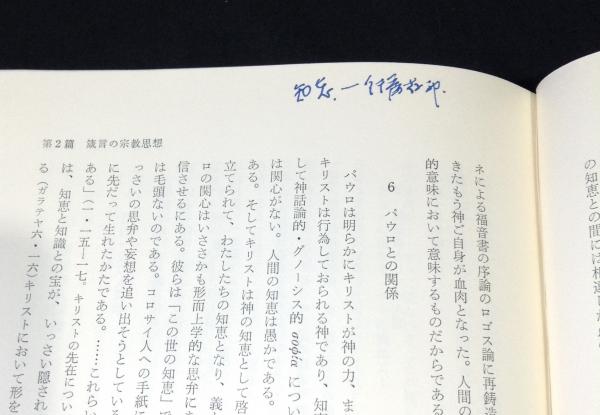 第2篇 箴言の宗教思想
の知恵との間には相違した
ネによる福音書の序論のロゴス論に再鋳造
きたもう神ご自身が血肉となった。人間の
的意味において意味するものだからである
6 パウロとの関係
パウロは明らかにキリストが神の力、ま
キリストは行為しておられる神であり、知恵
して神話論的・グノーシス的 σοφία につい
は関心がない。人間の知恵は愚かである。
ある。そしてキリストは神の知恵として啓
立てられて、わたしたちの知恵となり、義と
ロの関心はいささかも形而上学的な思弁にあ
信させるにある。彼らは「この世の知恵」で
は毛頭ないのである。コロサイ人への手紙に
っさいの思弁や妄想を追い出そうとしている
に先だって生れたかたである。……これらい
ある」(一・一五―一七。キリストの先在につい
は、知恵と知識との宝が、いっさい隠され
る(ガラテヤ六・一六)キリストにおいて形を